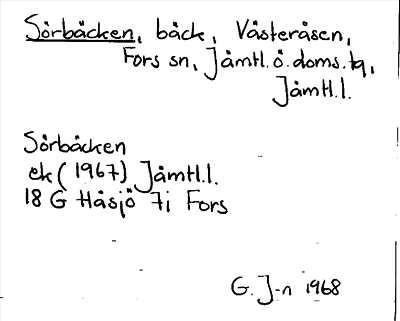 Sörbäcken, bäck, Västeråsen,
Fors sn, Jämtl.ö.doms.tg,
Jämtl.l.
Sörbäcken
ek (1967) Jämtl.l.
18 G Håsjö 7i Fors
G. J-n 1968